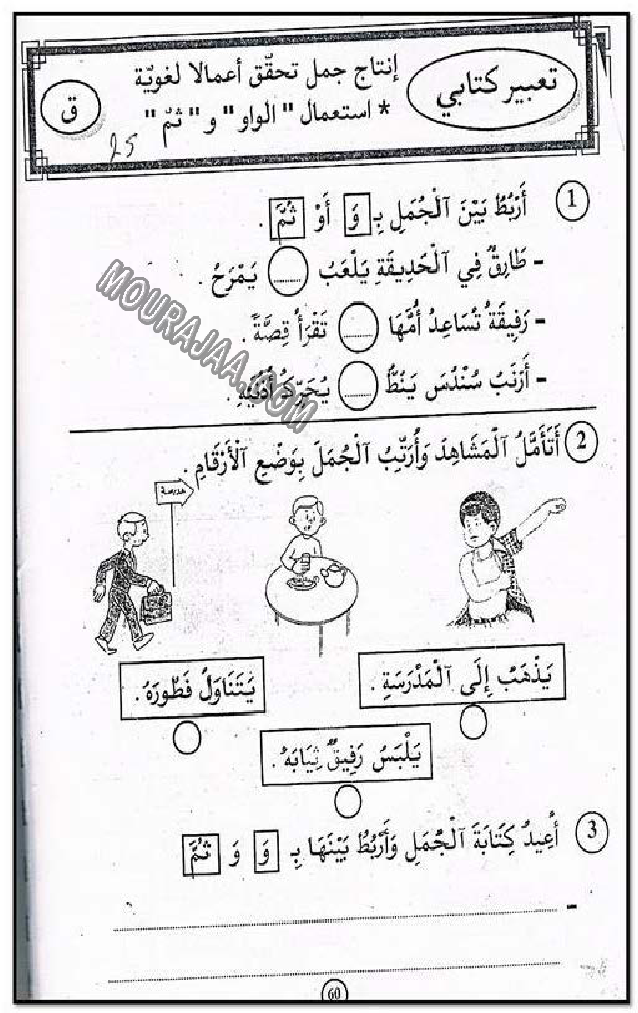 تعبير كتابي
إنتاج جمل تحقّق أعمالا لغويّة
* استعمال "الواو" و "ثمّ"
ق
25
1 أَرْبُطُ بَيْنَ الْجُمَلِ بِـ وَ أَوْ ثُمَّ .
- طَارِقٌ فِي الْحَدِيقَةِ يَلْعَبُ ........ يَمْرَحُ .
- رَفِيقَةُ تُسَاعِدُ أُمَّهَا ........ تَقْرَأُ قِصَّةً .
- أَرْنَبُ سُنْدُسَ يَنُطُّ ........ يُحَرِّكُ أُذُنَيْهِ .
MOURAJAA.COM
2 أَتَأَمَّلُ الْمَشَاهِدَ وَأُرَتِّبُ الْجُمَلَ بِوَضْعِ الْأَرْقَامِ .
مدرسة
يَذْهَبُ إِلَى الْمَدْرَسَةِ .
يَتَنَاوَلُ فَطُورَهُ .
يَلْبَسُ رَفِيقٌ ثِيَابَهُ .
3 أُعِيدُ كِتَابَةَ الْجُمَلِ وَأَرْبُطُ بَيْنَهَا بِـ وَ وَ ثُمَّ
60